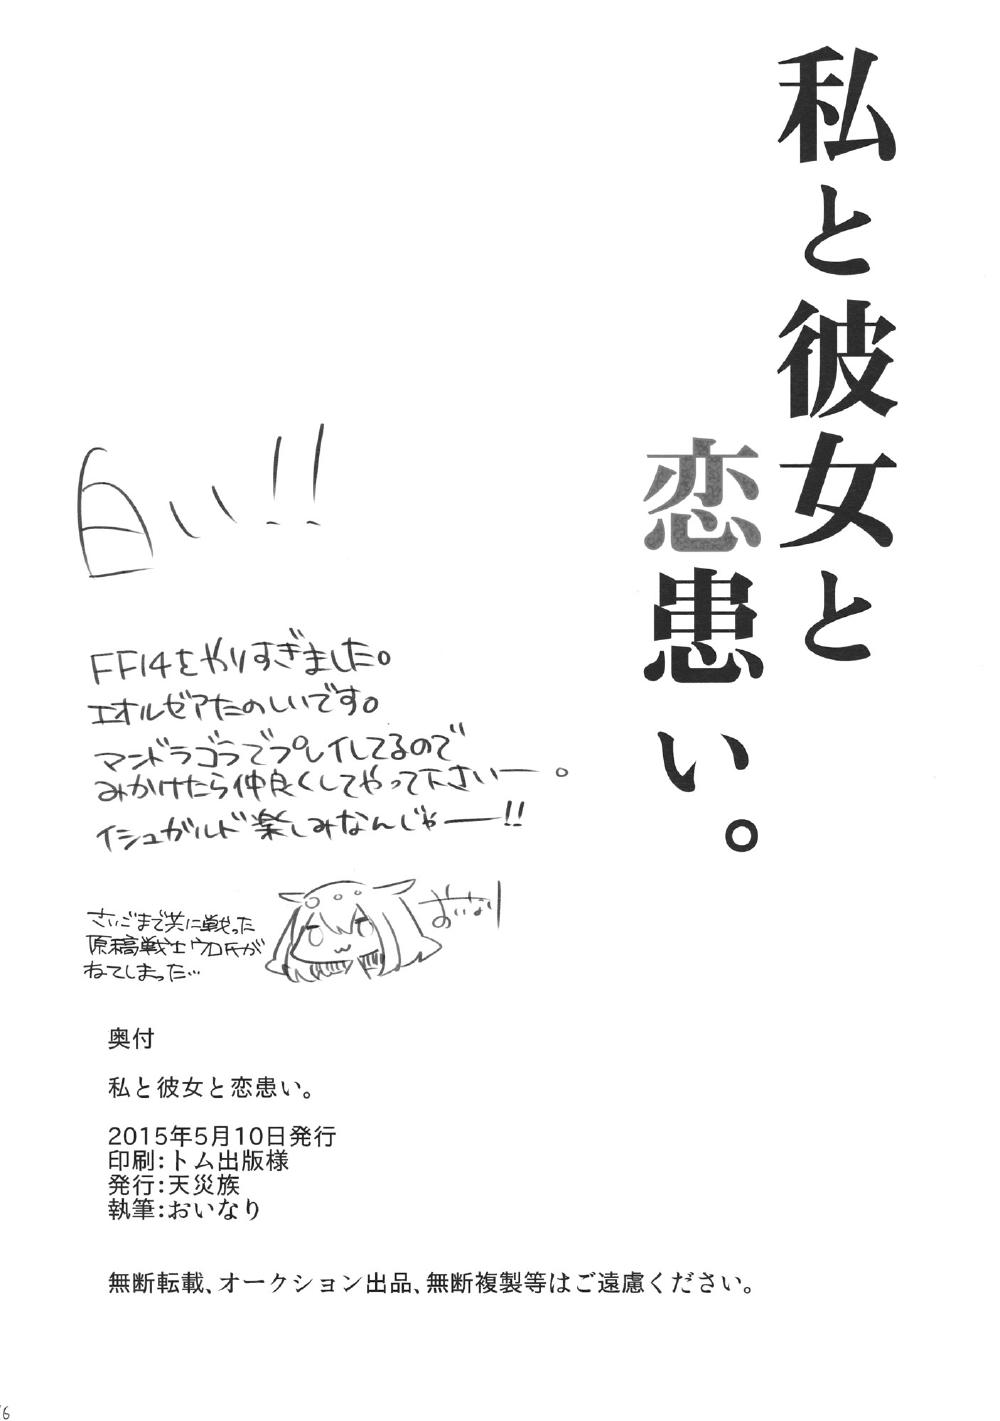 私と彼女と
恋患い。
白い!!
FF14をやりすぎました。
エオルゼアたのしいです。
マンドラゴラでプレイしてるので
みかけたら仲良くしてやって下さいー。
イシュガルド楽しみなんじゃー!!
おいなり
さいごまで共に戦った
原稿戦士ウロ氏が
ねてしまった…
奥付
私と彼女と恋患い。
2015年5月10日発行
印刷:トム出版様
発行:天災族
執筆:おいなり
無断転載、オークション出品、無断複製等はご遠慮ください。